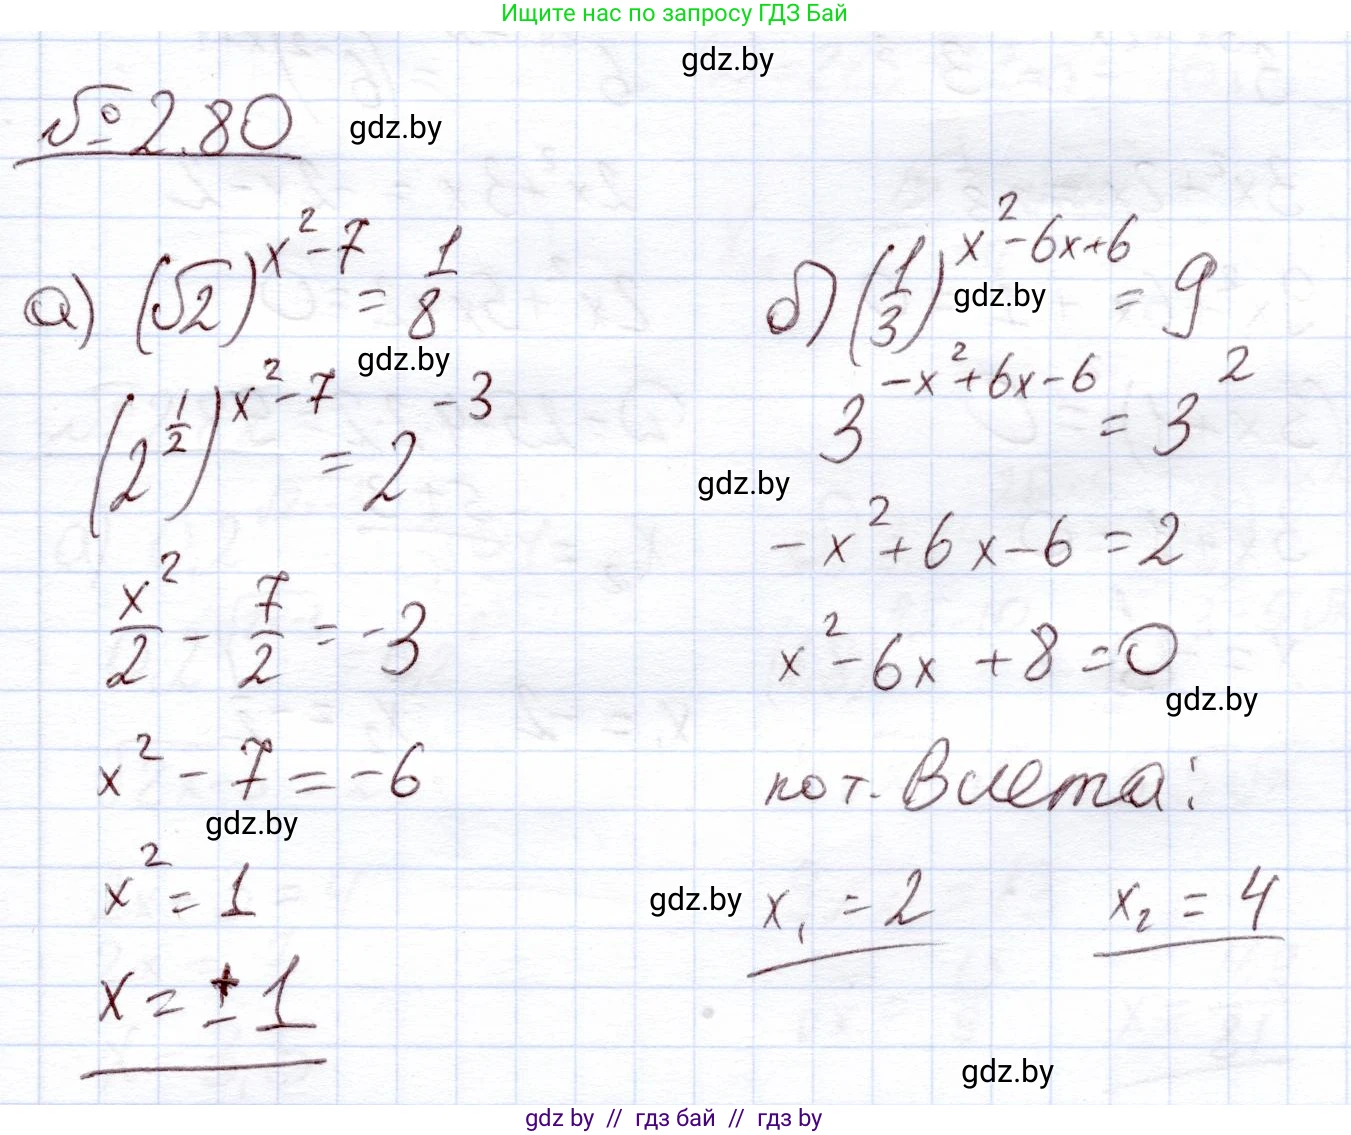 Ищите нас по запросу ГДЗ Бай
gdz.by
№ 2.80 gdz.by
а) (√2)^(x²-7) = 1/8
gdz.by
(2^(1/2))^(x²-7) = 2^(-3)
x²/2 - 7/2 = -3
x² - 7 = -6
gdz.by
x² = 1
x = ±1
б) (1/3)^(x²-6x+6) = 9
gdz.by
3^(-x²+6x-6) = 3²
gdz.by
-x²+6x-6 = 2
x²-6x+8=0
gdz.by
по т. Виета:
gdz.by x₁ = 2 x₂ = 4
gdz.by
gdz by // гдз бай // гдз by